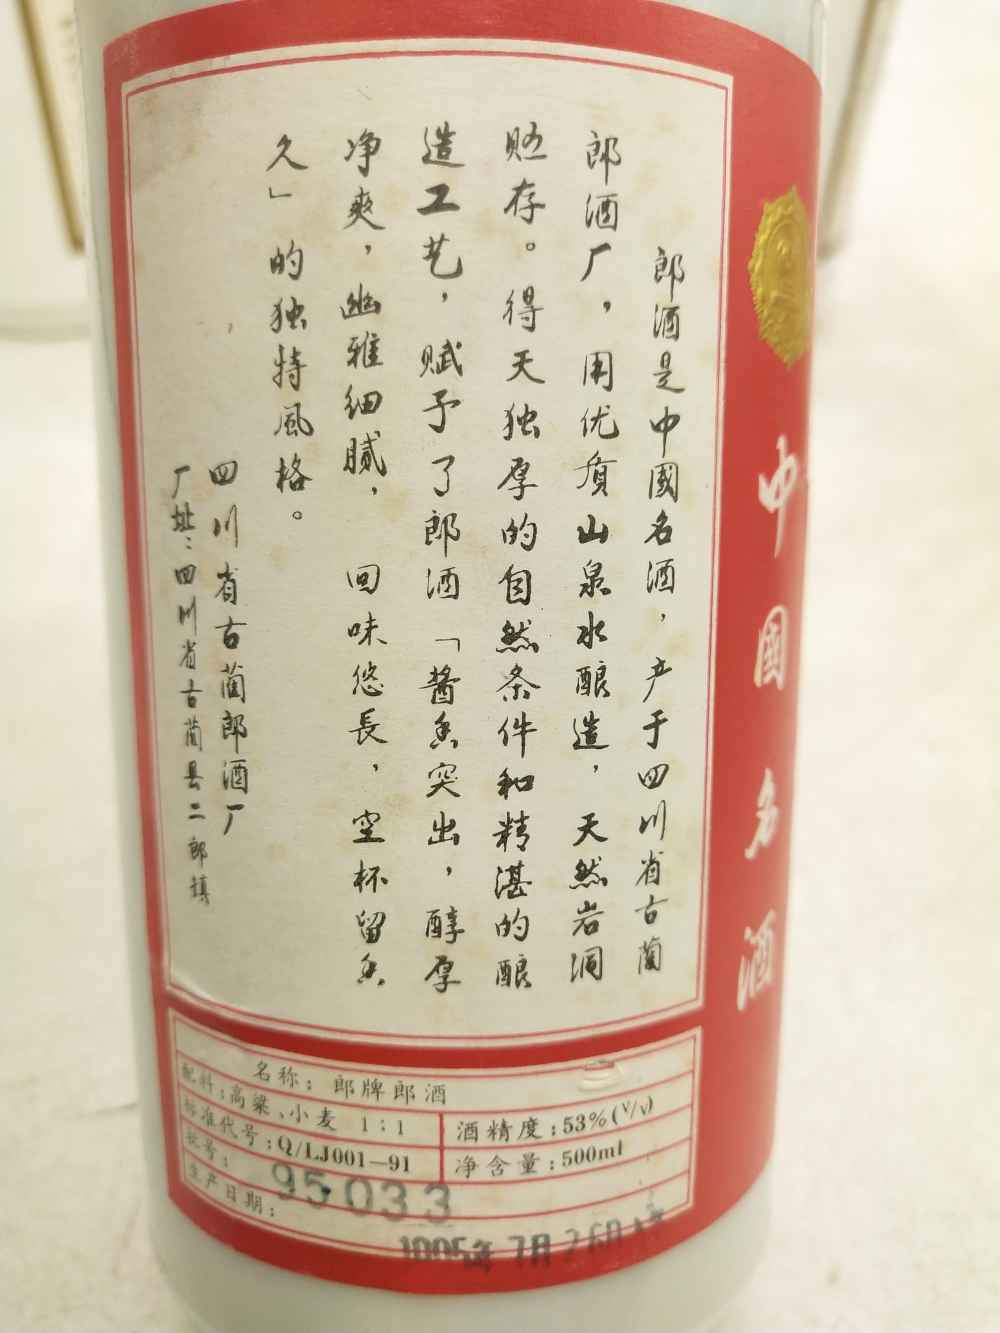 郎酒是中國名酒，产于四川省古蔺
郎酒厂，用优质山泉水酿造，天然岩洞
贮存。得天独厚的自然条件和精湛的酿
造工艺，赋予了郎酒「酱香突出，醇厚
净爽，幽雅细腻，回味悠長，空杯留香
久」的独特風格。
四川省古蔺郎酒厂
厂址：四川省古蔺县二郎镇
中國名酒
名称：郎牌郎酒
配料：高粱、小麦 1:1
酒精度：53%(V/V)
标准代号：Q/LJ001—91
净含量：500ml
批号：95033
生产日期：1995年7月26日